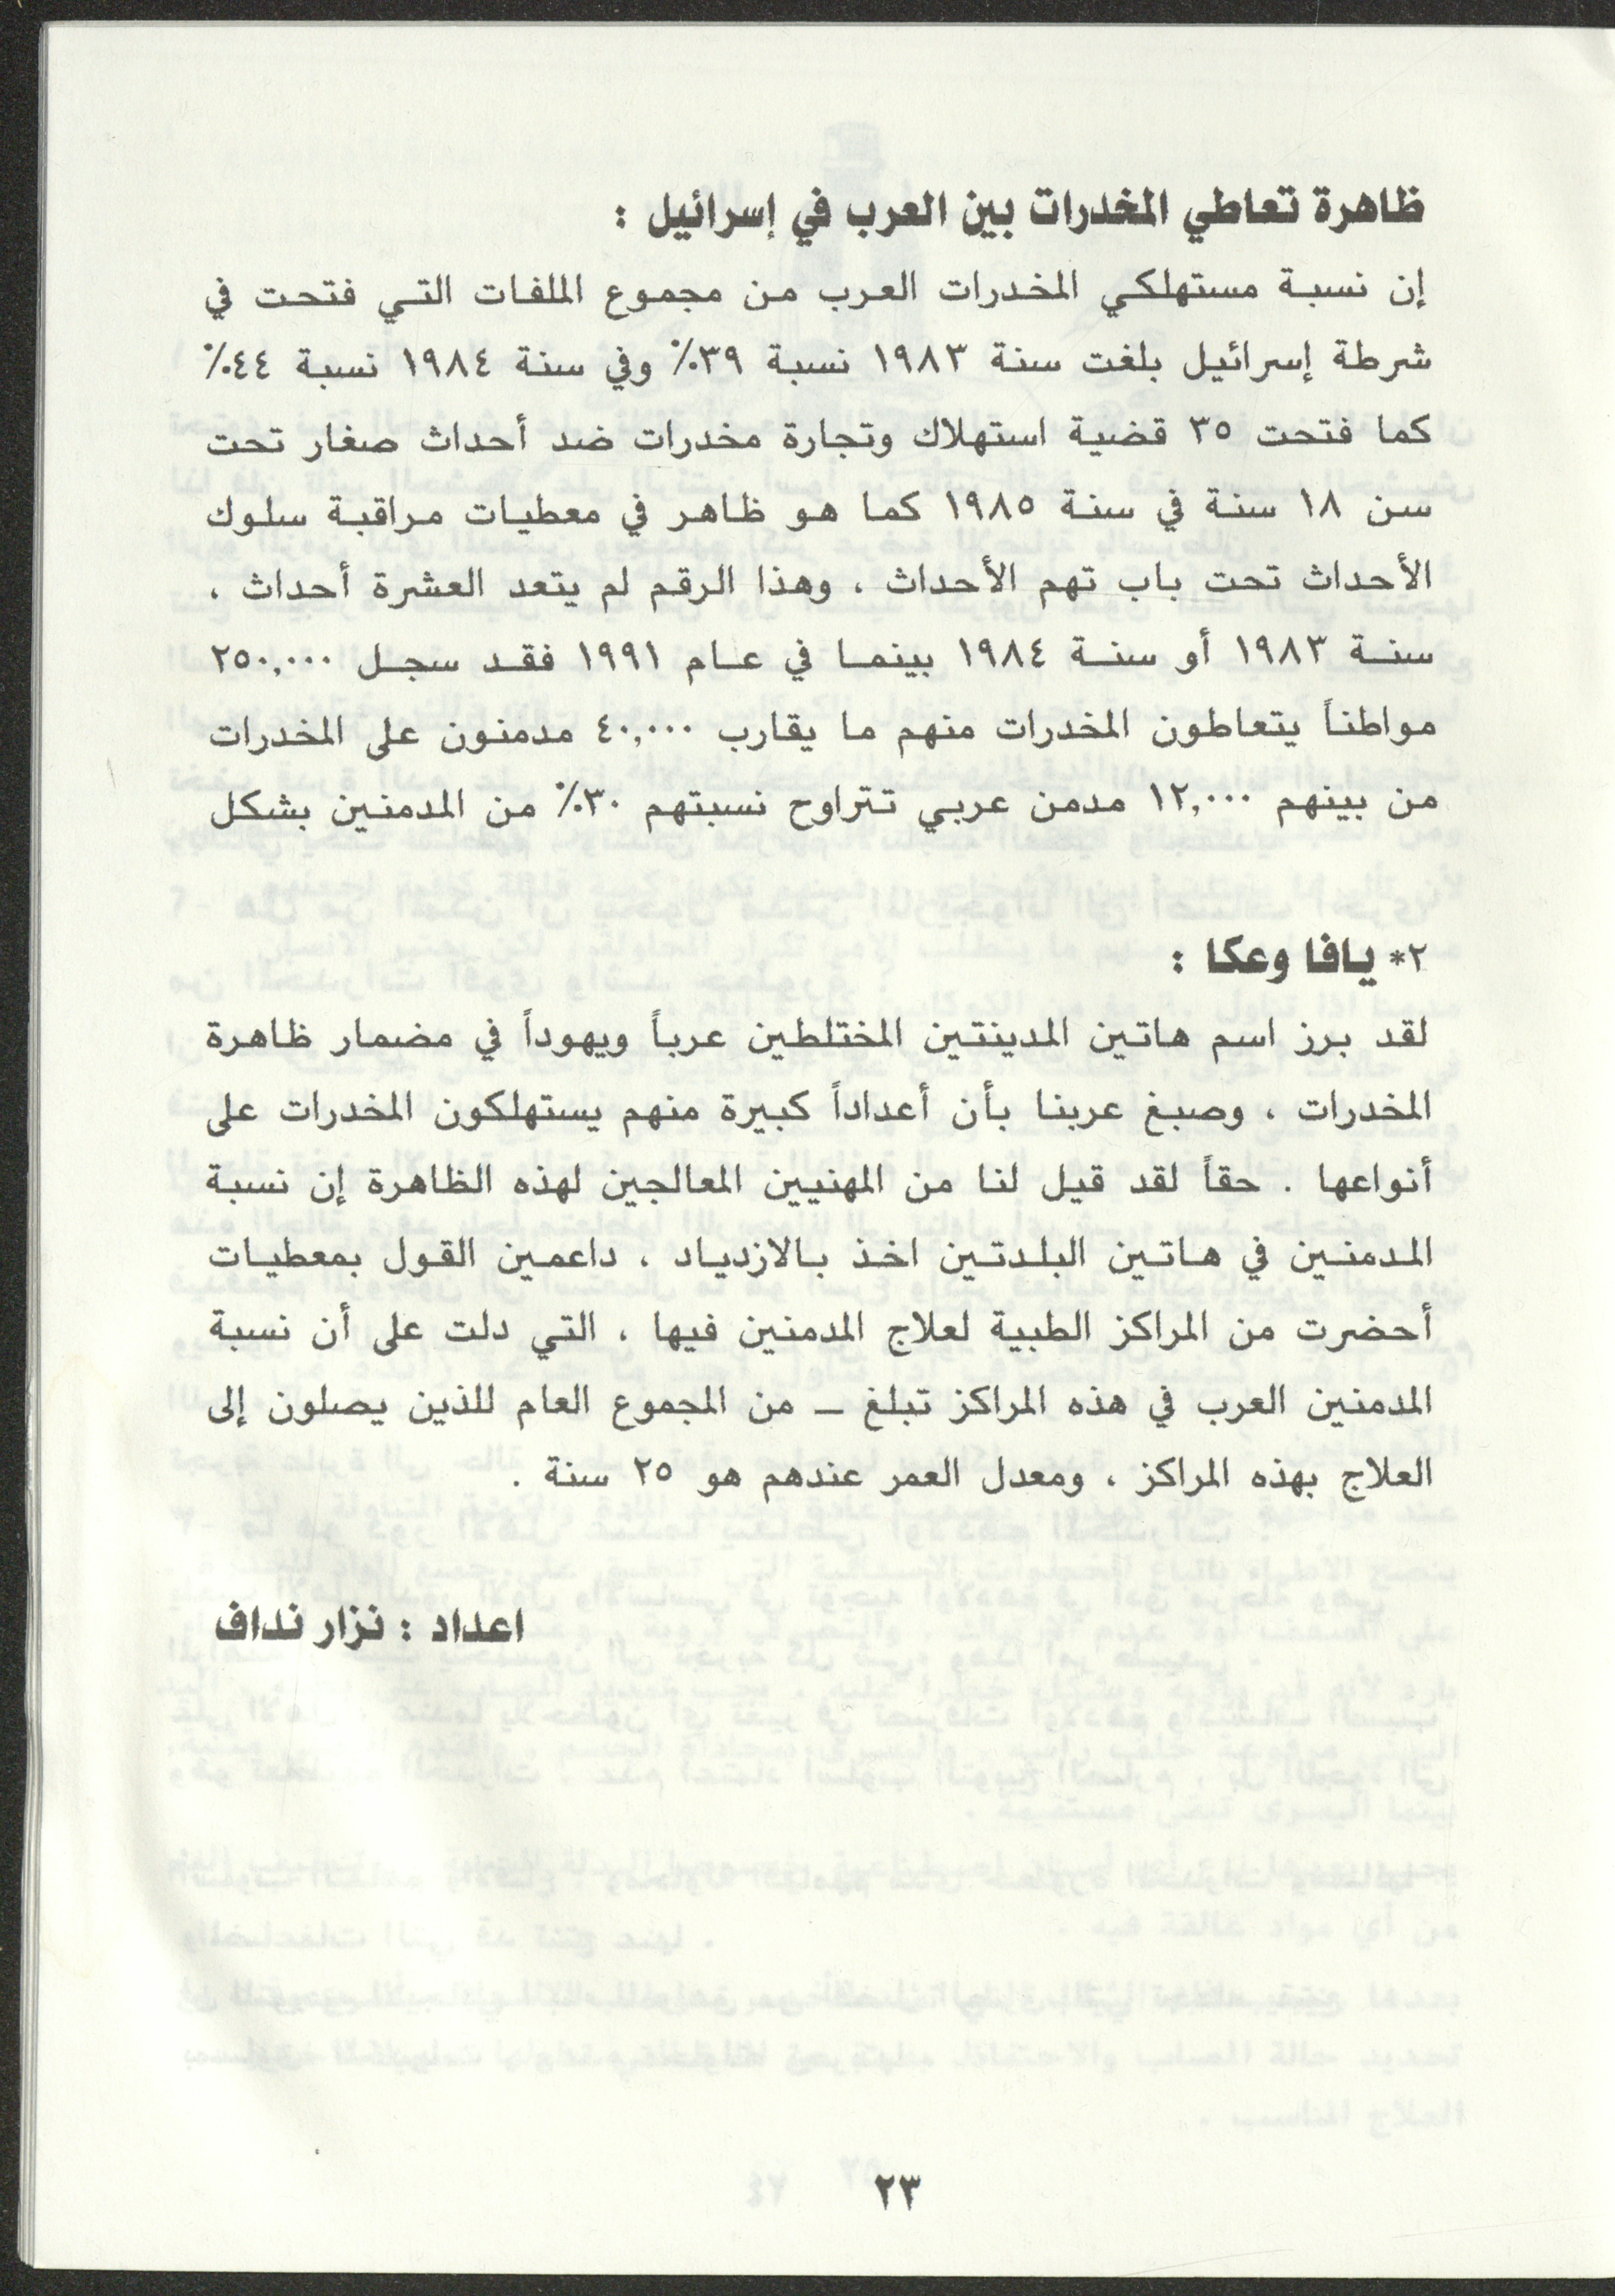 ظاهرة تعاطي المخدرات بين العرب في إسرائيل :
إن نسبة مستهلكي المخدرات العرب من مجموع الملفات التي فتحت في
شرطة إسرائيل بلغت سنة ١٩٨٣ نسبة ٣٩٪ وفي سنة ١٩٨٤ نسبة ٤٤٪
كما فتحت ٣٥ قضية استهلاك وتجارة مخدرات ضد أحداث صغار تحت
سن ١٨ سنة في سنة ١٩٨٥ كما هو ظاهر في معطيات مراقبة سلوك
الأحداث تحت باب تهم الأحداث ، وهذا الرقم لم يتعد العشرة أحداث ،
سنة ١٩٨٣ أو سنة ١٩٨٤ بينما في عام ١٩٩١ فقد سجل ٢٥٠,٠٠٠
مواطناً يتعاطون المخدرات منهم ما يقارب ٤٠,٠٠٠ مدمنون على المخدرات
من بينهم ١٢,٠٠٠ مدمن عربي تتراوح نسبتهم ٣٠٪ من المدمنين بشكل
٢* يافا وعكا :
لقد برز اسم هاتين المدينتين المختلطين عرباً ويهوداً في مضمار ظاهرة
المخدرات ، وصبغ عربنا بأن أعداداً كبيرة منهم يستهلكون المخدرات على
أنواعها . حقاً لقد قيل لنا من المهنيين المعالجين لهذه الظاهرة إن نسبة
المدمنين في هاتين البلدتين اخذ بالازدياد ، داعمين القول بمعطيات
أحضرت من المراكز الطبية لعلاج المدمنين فيها ، التي دلت على أن نسبة
المدمنين العرب في هذه المراكز تبلغ ـ من المجموع العام للذين يصلون إلى
العلاج بهذه المراكز ، ومعدل العمر عندهم هو ٢٥ سنة .
اعداد : نزار نداف
٢٣